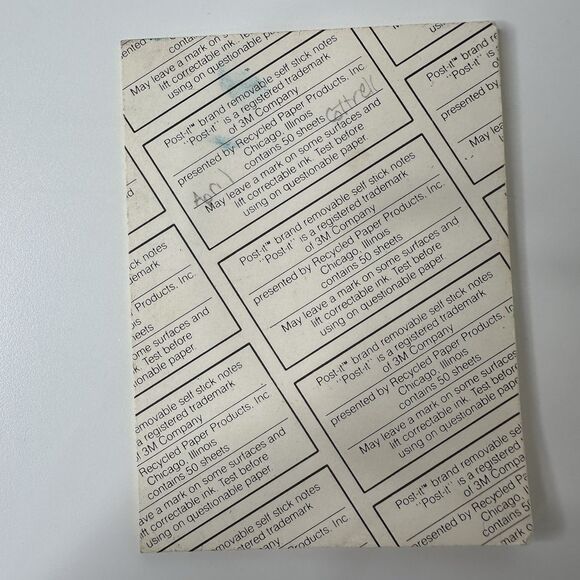 May leave a mark on
lift correctable ink. Test
using on questionable
Post-it™ brand removable self stick notes
"Post-it" is a registered trademark
of 3M Company
presented by Recycled Paper Products, Inc.
Chicago, Illinois
contains 50 sheets
May leave a mark on some surfaces and
lift correctable ink. Test before
using on questionable paper.
Post-it™ brand
"Post-it" is a
presented by
May
self stick notes
Products, Inc
some surfaces and
Test before
paper.
Post-it™ brand removable self stick notes
"Post-it" is a registered trademark
of 3M Company
presented by Recycled Paper Products, Inc.
Chicago, Illinois
contains 50 sheets
May leave a mark on some surfaces and
lift correctable ink. Test before
using on questionable paper.
Post-it™ brand removable self stick notes
"Post-it" is a registered trademark
of 3M Company
presented by Recycled Paper Products, Inc
Chicago, Illinois
contains 50 sheets
May leave a mark on some surfaces
lift correctable ink. Test before
using on questionable paper.
self stick notes
registered trademark
3M Company
Recycled Paper Products, Inc
Chicago, Illinois
contains 50 sheets
a mark on some surfaces and
correctable ink. Test before
using on questionable paper.
Post-it™ brand removable self
"Post-it" is a registered
of 3M
presented by Recycled
Chicago,
contains
removable self stick notes
registered trademark
Company
Products, Inc